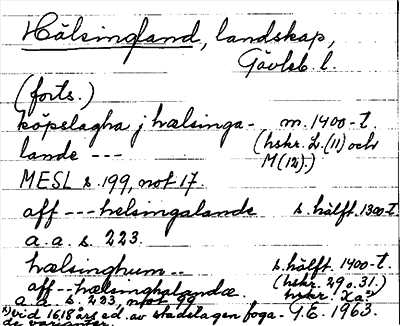 Hälsingland, landskap,
Gävleb. l.
(forts.)
köpslagha j hælsinga- m. 1400-t.
lande --- (hskr. L. (11) och
M (12).)
MESL s. 199, not 17.
aff --- helsingalande s. hälft. 1300-t.
a. a. s. 223.
hælsinghum -- s. hälft. 1400-t.
aff -- helsinghalandæ (hskr. 29 o. 31.)
a. a. s. 223, not 99 hskr. Xa²⁾
²⁾ vid 1618 års ed. av stadslagen foga- G.E. 1963.
de varianter.